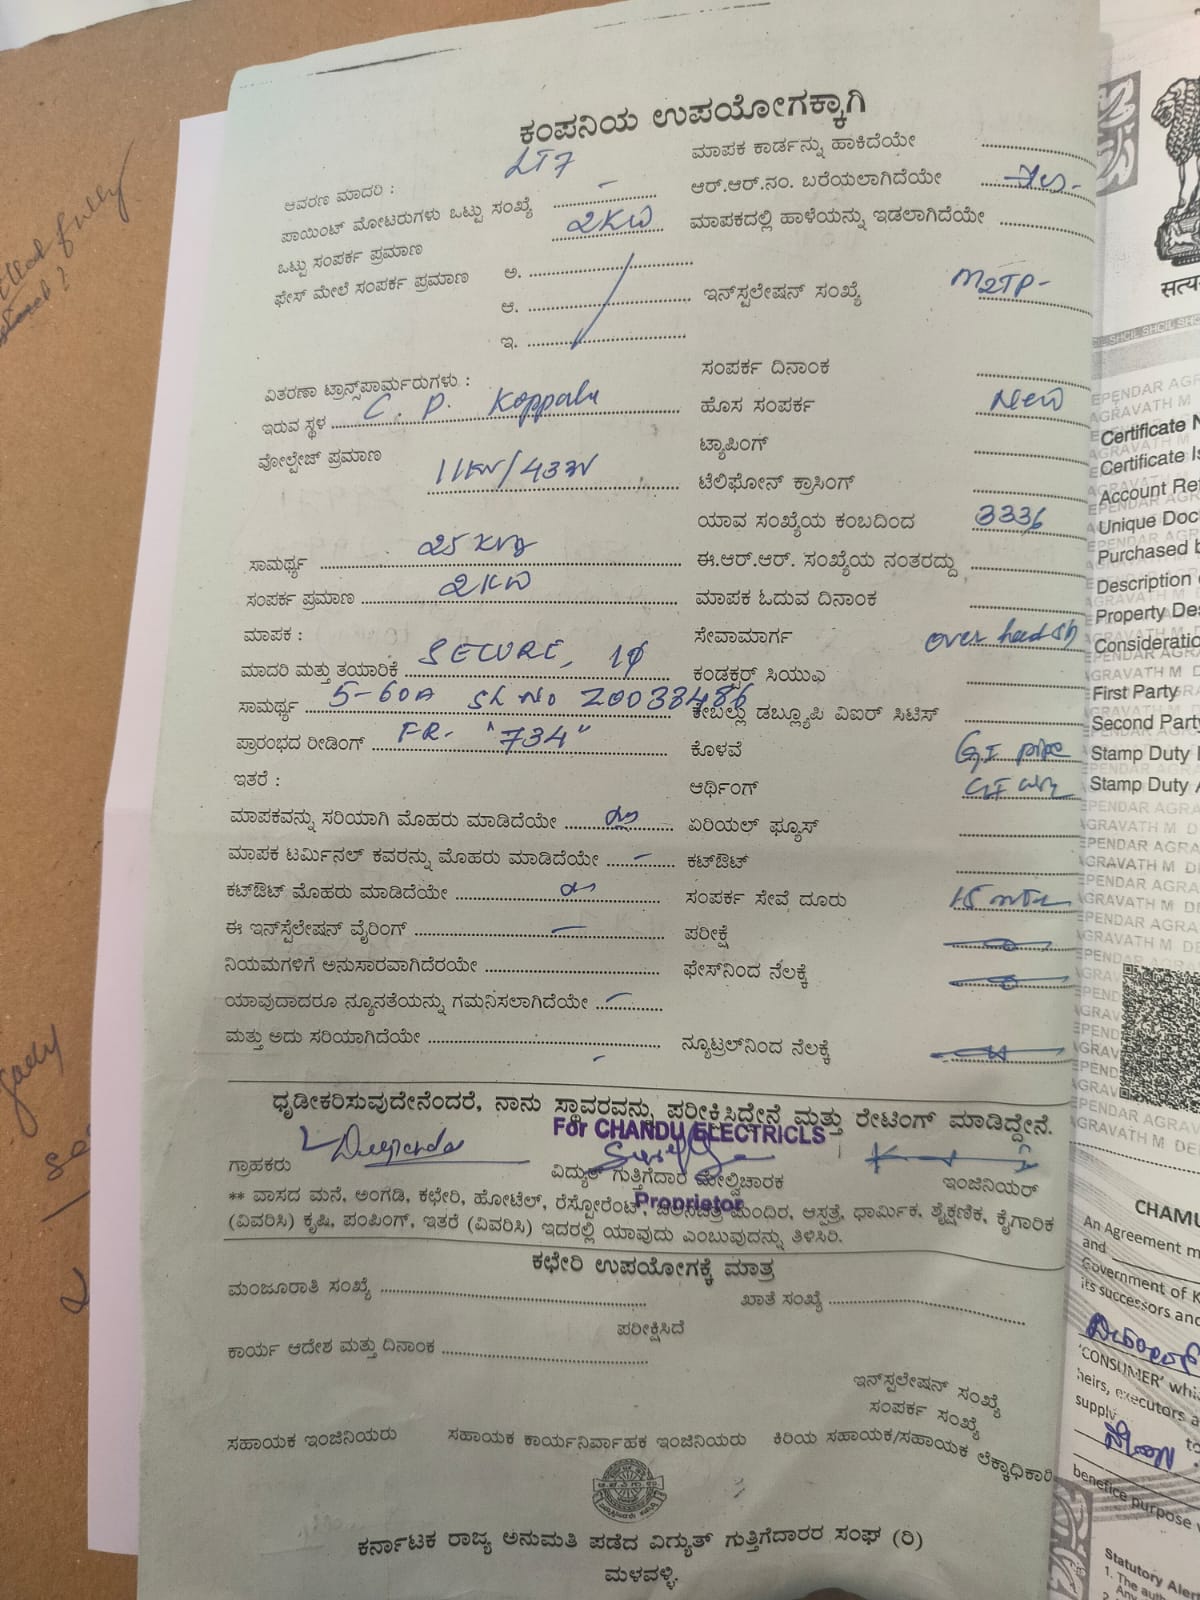 ಕಂಪನಿಯ ಉಪಯೋಗಕ್ಕಾಗಿ
ಆವರಣ ಮಾದರಿ : LT7
ಮಾಪಕ ಕಾರ್ಡನ್ನು ಹಾಕಿದೆಯೇ
ಪಾಯಿಂಟ್ ಮೋಟರುಗಳು ಒಟ್ಟು ಸಂಖ್ಯೆ –
ಆರ್.ಆರ್.ನಂ. ಬರೆಯಲಾಗಿದೆಯೇ
ಒಟ್ಟು ಸಂಪರ್ಕ ಪ್ರಮಾಣ 2KW
ಮಾಪಕದಲ್ಲಿ ಹಾಳೆಯನ್ನು ಇಡಲಾಗಿದೆಯೇ
ಫೇಸ್ ಮೇಲೆ ಸಂಪರ್ಕ ಪ್ರಮಾಣ ಅ.
ಆ.
ಇ.
ಇನ್‌ಸ್ಟಲೇಷನ್ ಸಂಖ್ಯೆ M2TP-
ವಿತರಣಾ ಟ್ರಾನ್ಸ್‌ಪಾರ್ಮರುಗಳು :
ಸಂಪರ್ಕ ದಿನಾಂಕ
ಇರುವ ಸ್ಥಳ C. D. Koppalu
ಹೊಸ ಸಂಪರ್ಕ New
ವೋಲ್ಟೇಜ್ ಪ್ರಮಾಣ 11KV/433V
ಟ್ಯಾಪಿಂಗ್
ಟೆಲಿಫೋನ್ ಕ್ರಾಸಿಂಗ್
ಯಾವ ಸಂಖ್ಯೆಯ ಕಂಬದಿಂದ 3336
ಸಾಮರ್ಥ್ಯ 25 KVA
ಈ.ಆರ್.ಆರ್. ಸಂಖ್ಯೆಯ ನಂತರದ್ದು
ಸಂಪರ್ಕ ಪ್ರಮಾಣ 2KW
ಮಾಪಕ ಓದುವ ದಿನಾಂಕ
ಮಾಪಕ :
ಸೇವಾಮಾರ್ಗ Over head
ಮಾದರಿ ಮತ್ತು ತಯಾರಿಕೆ SECURE, 1φ
ಕಂಡಕ್ಟರ್ ಸಿಯುಎ
ಸಾಮರ್ಥ್ಯ 5-60A SL NO Z0033486
ಕೇಬಲ್ಲು ಡಬ್ಲ್ಯೂಪಿ ವಿಐರ್ ಸಿಟಿಸ್
ಪ್ರಾರಂಭದ ರೀಡಿಂಗ್ FR- "734"
ಕೊಳವೆ GI pipe
ಇತರೆ :
ಆರ್ಥಿಂಗ್ GI
ಮಾಪಕವನ್ನು ಸರಿಯಾಗಿ ಮೊಹರು ಮಾಡಿದೆಯೇ
ಏರಿಯಲ್ ಫ್ಯೂಸ್
ಮಾಪಕ ಟರ್ಮಿನಲ್ ಕವರನ್ನು ಮೊಹರು ಮಾಡಿದೆಯೇ –
ಕಟ್‌ಔಟ್
ಕಟ್‌ಔಟ್ ಮೊಹರು ಮಾಡಿದೆಯೇ
ಸಂಪರ್ಕ ಸೇವೆ ದೂರು
ಈ ಇನ್‌ಸ್ಟೆಲೇಷನ್ ವೈರಿಂಗ್ –
ಪರೀಕ್ಷೆ
ನಿಯಮಗಳಿಗೆ ಅನುಸಾರವಾಗಿದೆರಯೇ
ಫೇಸ್‌ನಿಂದ ನೆಲಕ್ಕೆ
ಯಾವುದಾದರೂ ನ್ಯೂನತೆಯನ್ನು ಗಮನಿಸಲಾಗಿದೆಯೇ –
ಮತ್ತು ಅದು ಸರಿಯಾಗಿದೆಯೇ
ನ್ಯೂಟ್ರಲ್‌ನಿಂದ ನೆಲಕ್ಕೆ
ಧೃಡೀಕರಿಸುವುದೇನೆಂದರೆ, ನಾನು ಸ್ಥಾವರವನ್ನು ಪರೀಕ್ಷಿಸಿದ್ದೇನೆ ಮತ್ತು ರೇಟಿಂಗ್ ಮಾಡಿದ್ದೇನೆ.
For CHANDU ELECTRICLS
ಗ್ರಾಹಕರು
ವಿದ್ಯುತ್ ಗುತ್ತಿಗೆದಾರ ಮೇಲ್ವಿಚಾರಕ
ಇಂಜಿನಿಯರ್
Proprietor
** ವಾಸದ ಮನೆ, ಅಂಗಡಿ, ಕಛೇರಿ, ಹೋಟೆಲ್, ರೆಸ್ಟೋರೆಂಟ್, ಚಲನಚಿತ್ರ ಮಂದಿರ, ಆಸ್ಪತ್ರೆ, ಧಾರ್ಮಿಕ, ಶೈಕ್ಷಣಿಕ, ಕೈಗಾರಿಕ
(ವಿವರಿಸಿ) ಕೃಷಿ, ಪಂಪಿಂಗ್, ಇತರೆ (ವಿವರಿಸಿ) ಇದರಲ್ಲಿ ಯಾವುದು ಎಂಬುವುದನ್ನು ತಿಳಿಸಿರಿ.
ಕಛೇರಿ ಉಪಯೋಗಕ್ಕೆ ಮಾತ್ರ
ಮಂಜೂರಾತಿ ಸಂಖ್ಯೆ
ಖಾತೆ ಸಂಖ್ಯೆ
ಪರೀಕ್ಷಿಸಿದೆ
ಕಾರ್ಯ ಆದೇಶ ಮತ್ತು ದಿನಾಂಕ
ಇನ್‌ಸ್ಟಲೇಷನ್ ಸಂಖ್ಯೆ
ಸಂಪರ್ಕ ಸಂಖ್ಯೆ
ಸಹಾಯಕ ಇಂಜಿನಿಯರು ಸಹಾಯಕ ಕಾರ್ಯನಿರ್ವಾಹಕ ಇಂಜಿನಿಯರು ಕಿರಿಯ ಸಹಾಯಕ/ಸಹಾಯಕ ಲೆಕ್ಕಾಧಿಕಾರಿ
ಕರ್ನಾಟಕ ರಾಜ್ಯ ಅನುಮತಿ ಪಡೆದ ವಿದ್ಯುತ್ ಗುತ್ತಿಗೆದಾರರ ಸಂಘ (ರಿ)
ಮಳವಳ್ಳಿ.
सत्य
Certificate N
Certificate Is
Account Ref
Unique Doc
Purchased b
Description
Property Des
Consideratio
First Party
Second Party
Stamp Duty
Stamp Duty A
CHAMU
An Agreement m
and
Government of K
its successors and
'CONSUMER' whi
heirs, executors a
supply
to
benefice purpose
Statutory Alert
1. The auth